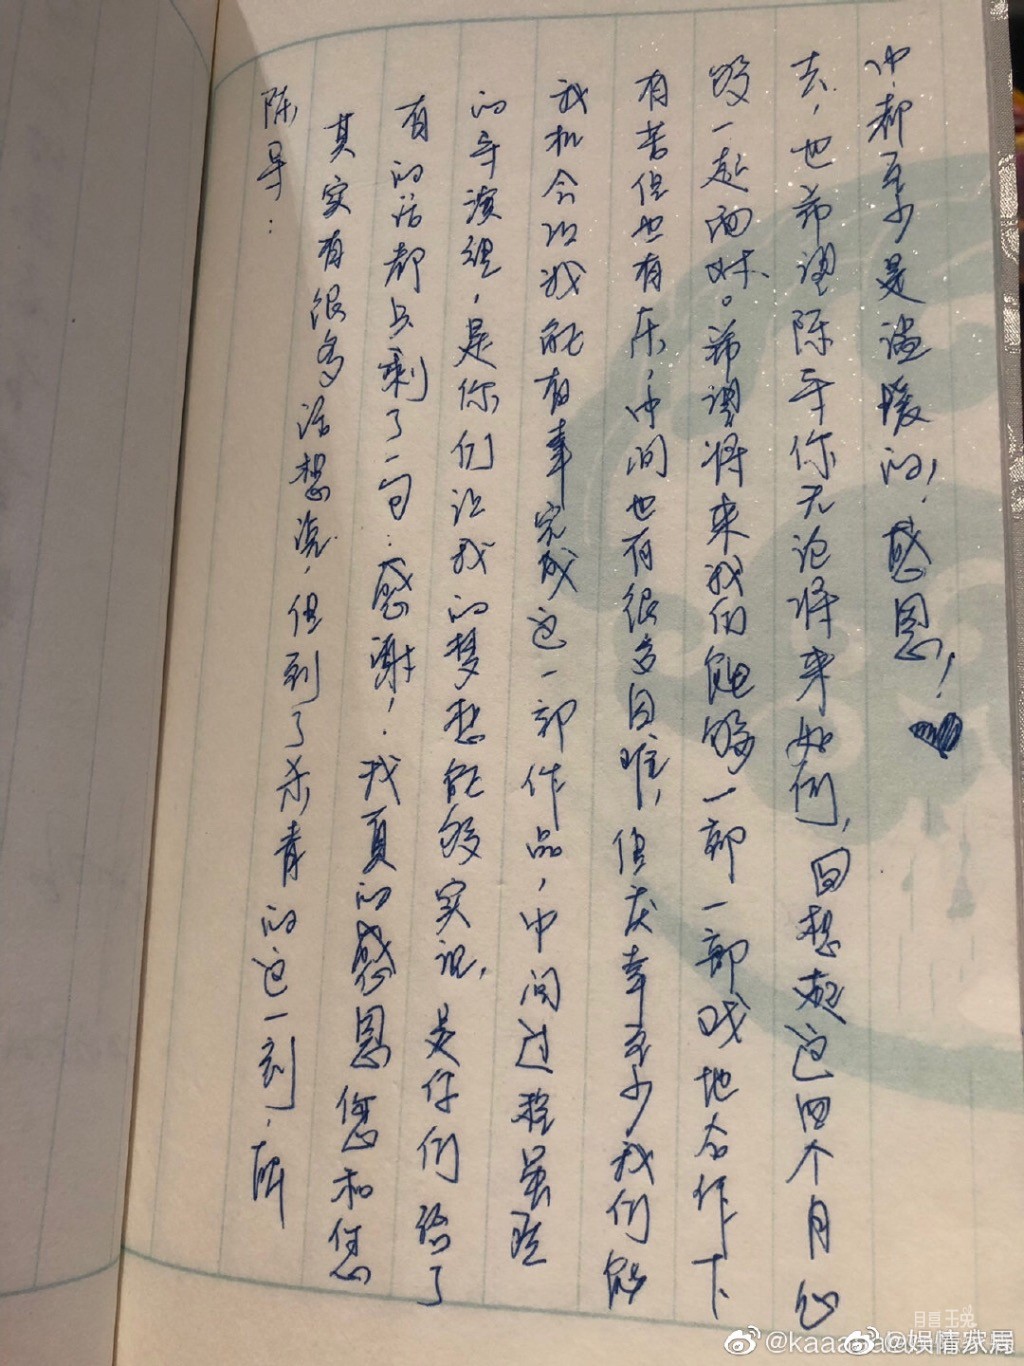 陈导：
其实有很多话想说，但到了杀青的这一刻，所
有的话都只剩了一句：感谢！我真的感恩您和您
的导演组，是你们让我的梦想能够实现，是你们给了
我机会让我能有幸完成这一部作品，中间过程虽然
有苦但也有乐，中间也有很多困难，但庆幸至少我们能
够一起面对。希望将来我们能够一部一部戏地合作下
去，也希望陈导你无论将来如何，回想起这四个月心
中都至少是温暖的！感恩！♥